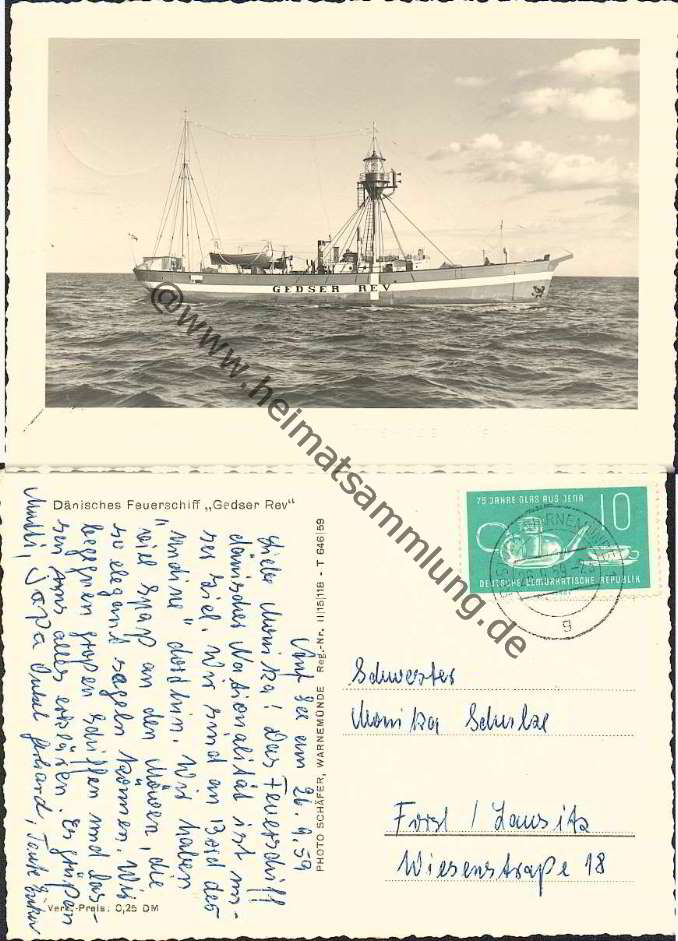 GEDSER REV
@www.heimatsammlung.de
Dänisches Feuerschiff „Gedser Rev"
Auf See am 26. 9. 59
Liebe Monika! Das Feuerschiff
dänischer Nationalität ist un-
ser Ziel. Wir sind an Bord des
"Undine" dorthin. Wir haben
viel Spaß an den Möwen, die
so elegant segeln können. Wir
begegnen großen Schiffen und las-
sen uns alles erklären. Es grüßen
Mutti, Papa Onkel Gerhard, Tante
Verk.-Preis: 0,25 DM
PHOTO SCHÄFER, WARNEMÜNDE Reg.-Nr. II|15|118 - T 646|59
75 JAHRE GLAS AUS JENA 10
DEUTSCHE DEMOKRATISCHE REPUBLIK
WARNEMÜNDE
g
Schwester
Monika Schulze
Forst / Lausitz
Wiesenstraße 18